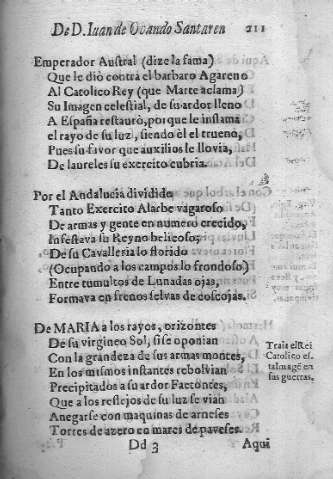 De D. Iuan de Ovando Santaren 211
Emperador Austral (dize la fama)
Que le diò contra el barbaro Agareno
Al Catolico Rey (que Marte aclama)
Su Imagen celestial, de su ardor lleno
A España restaurò, porque le inflama
el rayo de su luz, siendo èl el trueno,
Pues su favor que auxilios le llovia,
De laureles su exercito cubria.
Por el Andalucia dividido
Tanto Exercito Alarbe vagaroso
De armas y gente en numero crecido,
Infestava su Reyno belicoso;
De su Cavalleria lo florido
(Ocupando a los campos lo frondoso)
Entre tumultos de Lunadas ojas,
Formava en frenos selvas de coscojas.
De MARIA a los rayos, orizontes
De su virgineo Sol, si se oponian
Con la grandeza de sus armas montes,
En los mismos instantes rebolvian
Precipitados a su ardor Faetontes,
Que a los reflejos de su luz se vian
Anegarse con maquinas de arneses
Torres de azero en mares de paveses.
Trait el Rei
Catolico es-
ta Imagẽ en
sus guerras.
Dd 3 Aqui